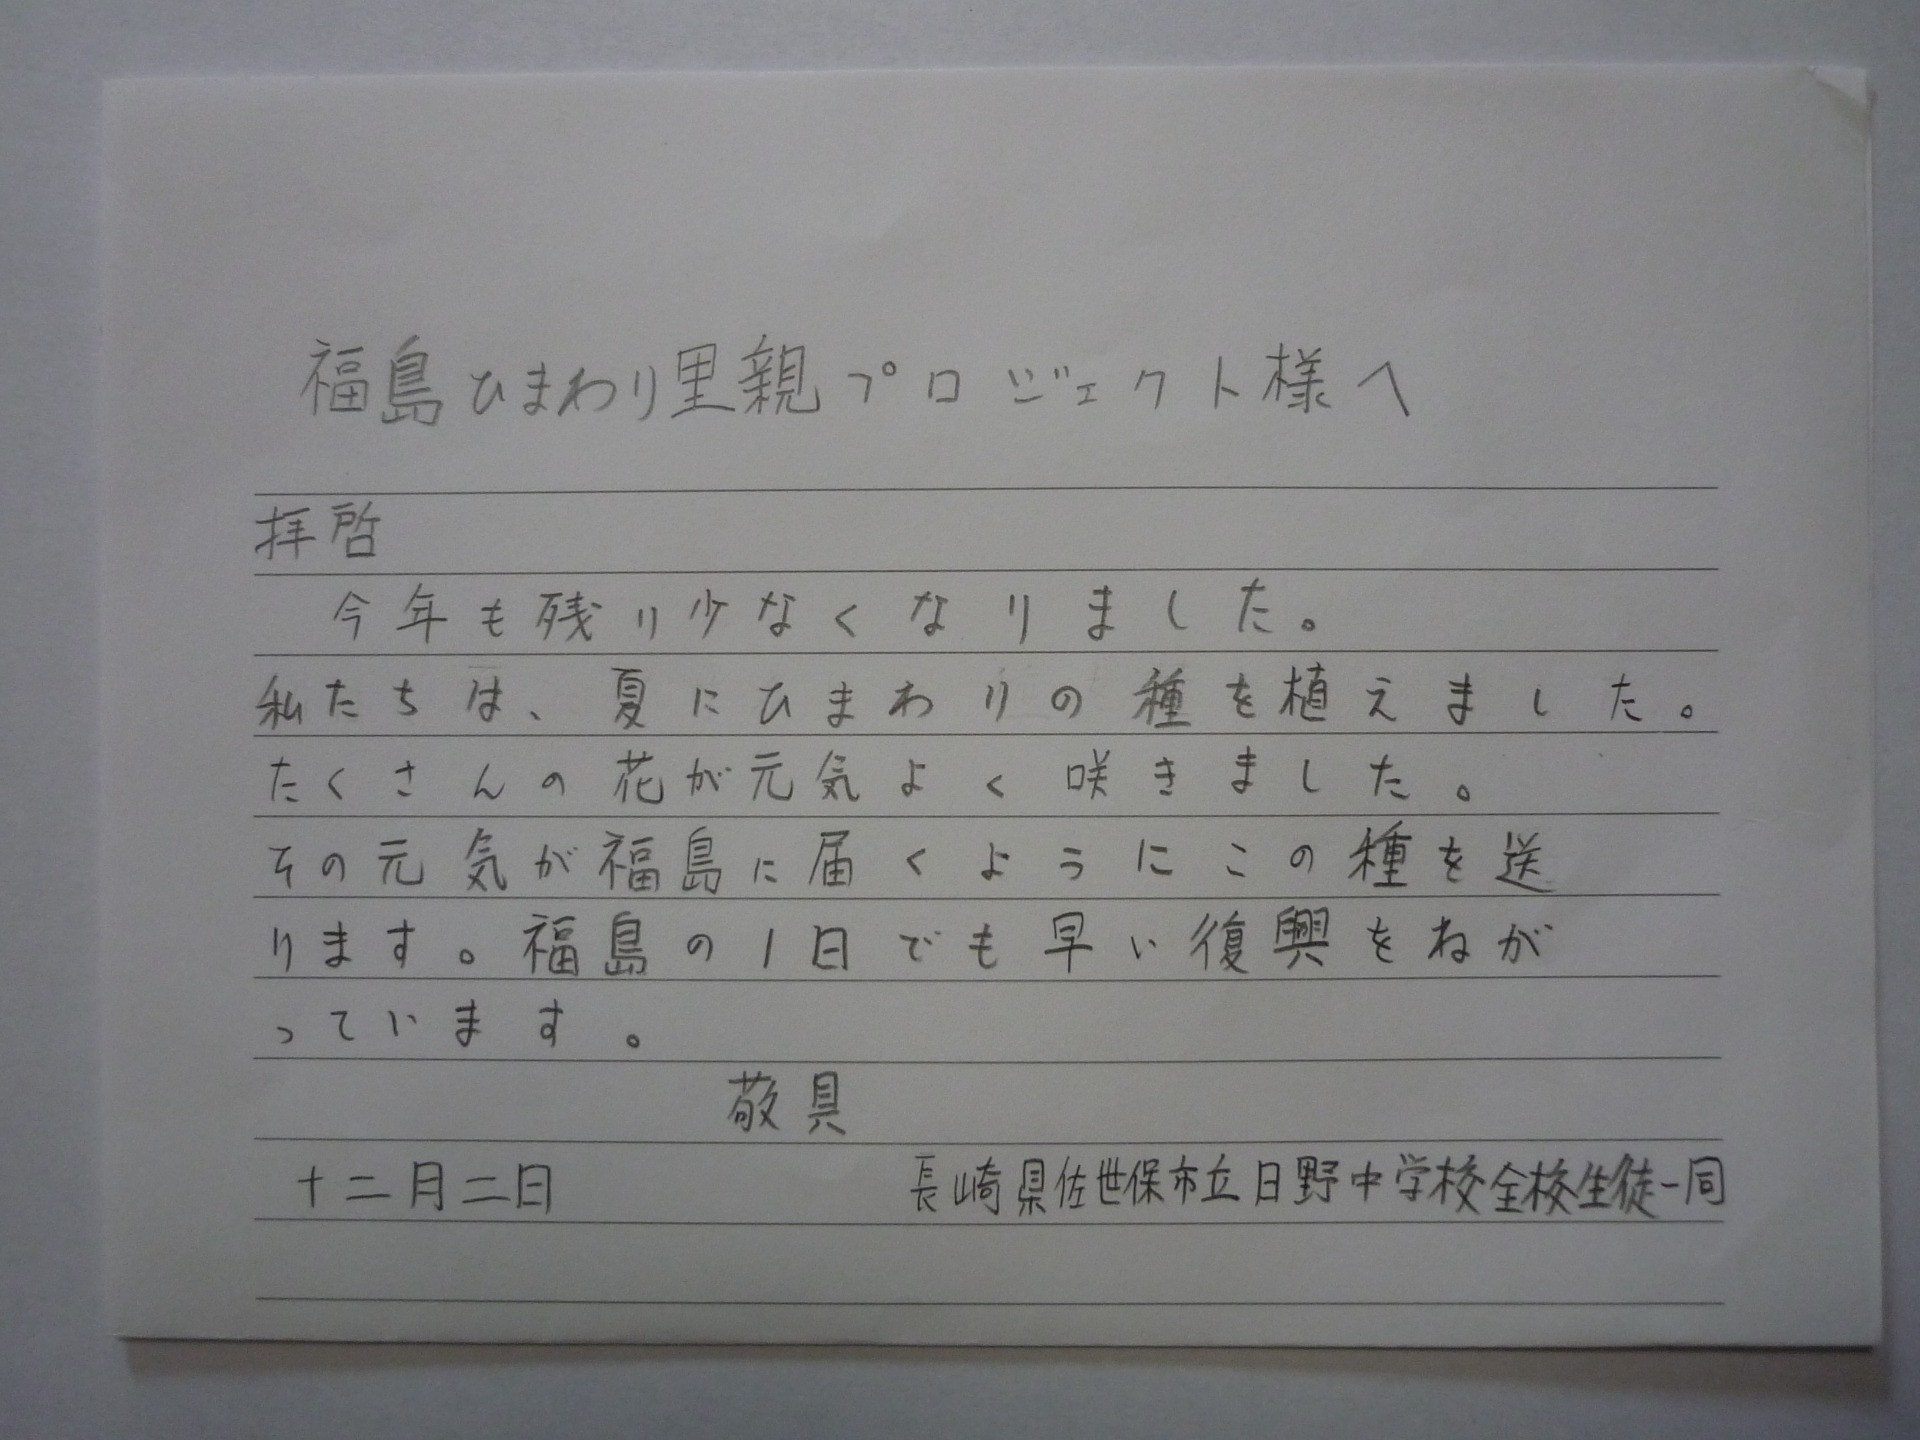 福島ひまわり里親プロジェクト様へ
拝啓
今年も残り少なくなりました。
私たちは、夏にひまわりの種を植えました。
たくさんの花が元気よく咲きました。
その元気が福島に届くようにこの種を送
ります。福島の1日でも早い復興をねが
っています。
敬具
十二月二日 長崎県佐世保市立日野中学校全校生徒一同